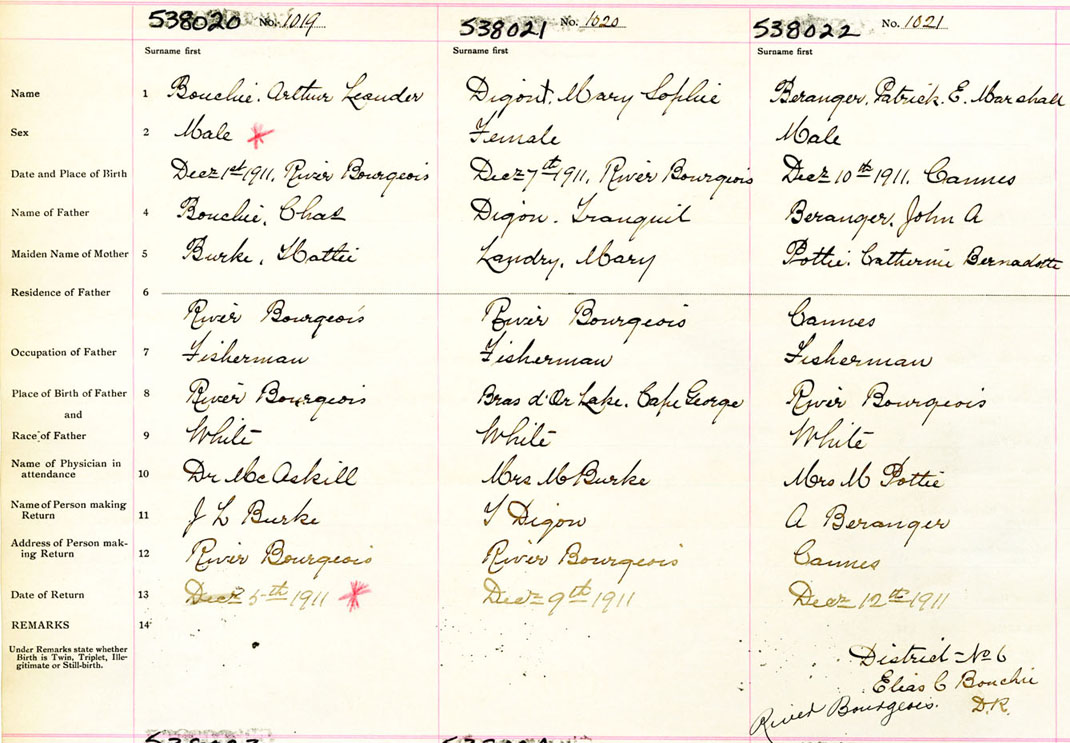 538020 No. 1019 538021 No. 1020 538022 No. 1021
Surname first Surname first Surname first
Name 1 Bouchie, Arthur Leander Digont, Mary Sophie Beranger, Patrick E. Marshall
Sex 2 Male Female Male
Date and Place of Birth 3 Decr 1st 1911, River Bourgeois Decr 7th 1911, River Bourgeois Decr 10th 1911, Cannes
Name of Father 4 Bouchie, Chas Digon, Tranquil Beranger, John A
Maiden Name of Mother 5 Burke, Hattie Landry, Mary Pottie, Catherine Bernadotte
Residence of Father 6
River Bourgeois River Bourgeois Cannes
Occupation of Father 7 Fisherman Fisherman Fisherman
Place of Birth of Father 8 River Bourgeois Bras d'Or Lake, Cape George River Bourgeois
and
Race of Father 9 White White White
Name of Physician in
attendance 10 Dr McAskill Mrs M Burke Mrs M Pottie
Name of Person making
Return 11 J L Burke T Digon A Beranger
Address of Person mak-
ing Return 12 River Bourgeois River Bourgeois Cannes
Date of Return 13 Decr 5th 1911 Decr 9th 1911 Decr 12th 1911
REMARKS 14
Under Remarks state whether
Birth is Twin, Triplet, Ille-
gitimate or Still-birth.
District No 6
Elias C Bouchie
River Bourgeois. D.R.